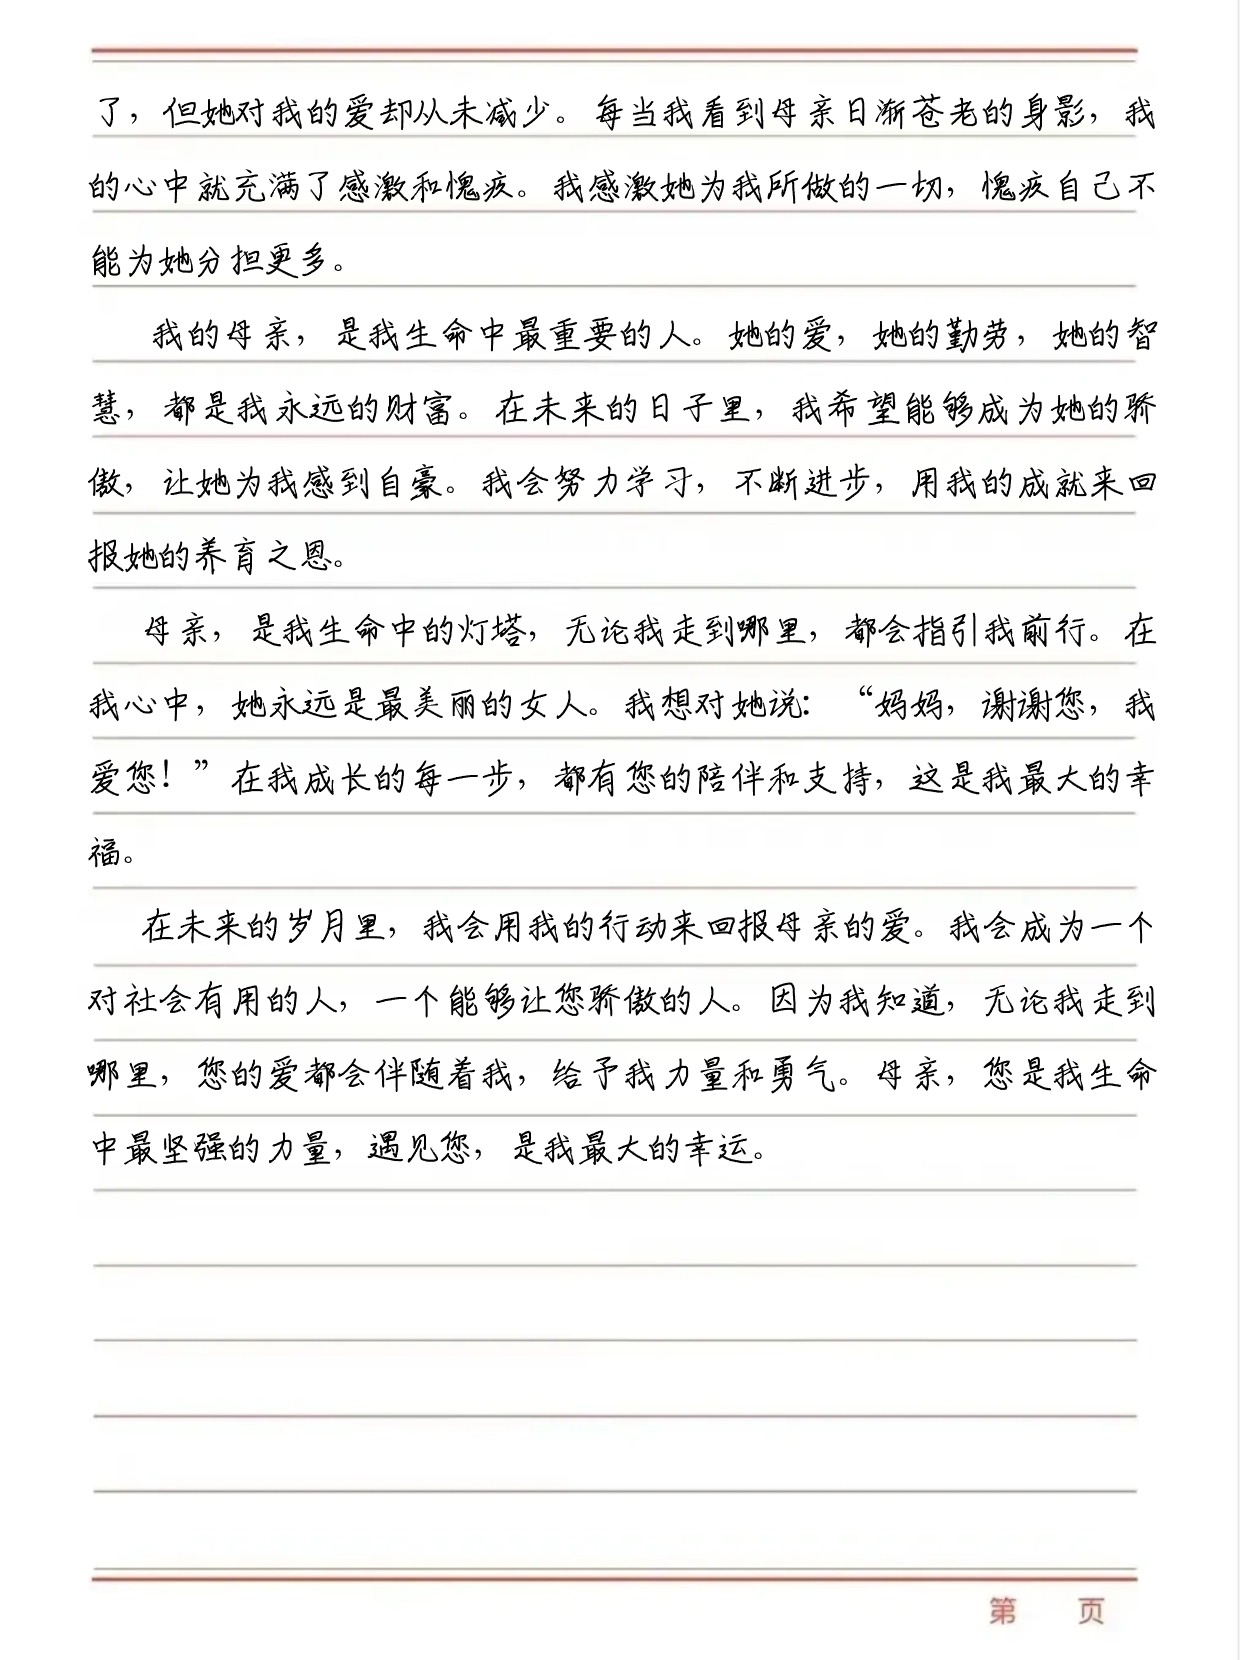 了，但她对我的爱却从未减少。每当我看到母亲日渐苍老的身影，我
的心中就充满了感激和愧疚。我感激她为我所做的一切，愧疚自己不
能为她分担更多。
我的母亲，是我生命中最重要的人。她的爱，她的勤劳，她的智
慧，都是我永远的财富。在未来的日子里，我希望能够成为她的骄
傲，让她为我感到自豪。我会努力学习，不断进步，用我的成就来回
报她的养育之恩。
母亲，是我生命中的灯塔，无论我走到哪里，都会指引我前行。在
我心中，她永远是最美丽的女人。我想对她说：“妈妈，谢谢您，我
爱您！”在我成长的每一步，都有您的陪伴和支持，这是我最大的幸
福。
在未来的岁月里，我会用我的行动来回报母亲的爱。我会成为一个
对社会有用的人，一个能够让您骄傲的人。因为我知道，无论我走到
哪里，您的爱都会伴随着我，给予我力量和勇气。母亲，您是我生命
中最坚强的力量，遇见您，是我最大的幸运。
第 页